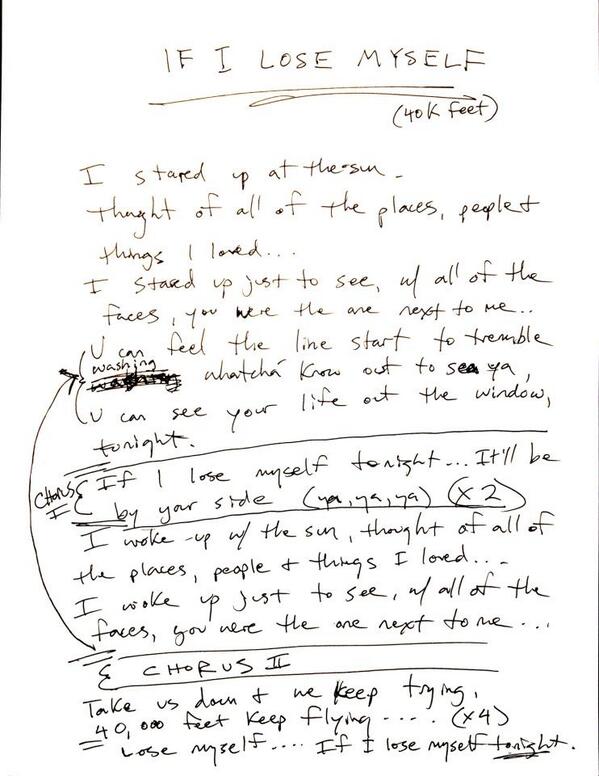 IF I LOSE MYSELF
(40K feet)
I stared up at the sun -
thought of all of the places, people +
things I loved...
I stared up just to see, w/ all of the
faces, you were the one next to me..
U can feel the line start to tremble
washing
whatcha know out to sea ya,
U can see your life out the window,
tonight.
CHORUS I
If I lose myself tonight... It'll be
by your side (ya, ya, ya) (x2)
I woke up w/ the sun, thought of all of
the places, people + things I loved...
I woke up just to see, w/ all of the
faces, you were the one next to me...
CHORUS II
Take us down + we keep trying,
40,000 feet keep flying.... (x4)
Lose myself.... If I lose myself tonight.